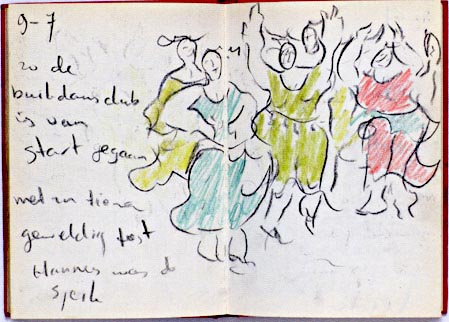 9-7
zo de
buikdansclub
is van
start gegaan
met een
geweldig fest
Hannes was de